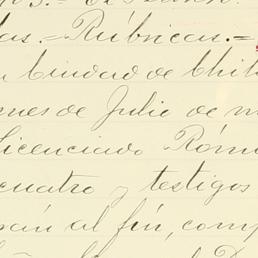 das.=Rúbricas.=
Ciudad de Chih
nes de Julio de m
Licenciado Róm
cuatro y testigos
pán al fin, comp